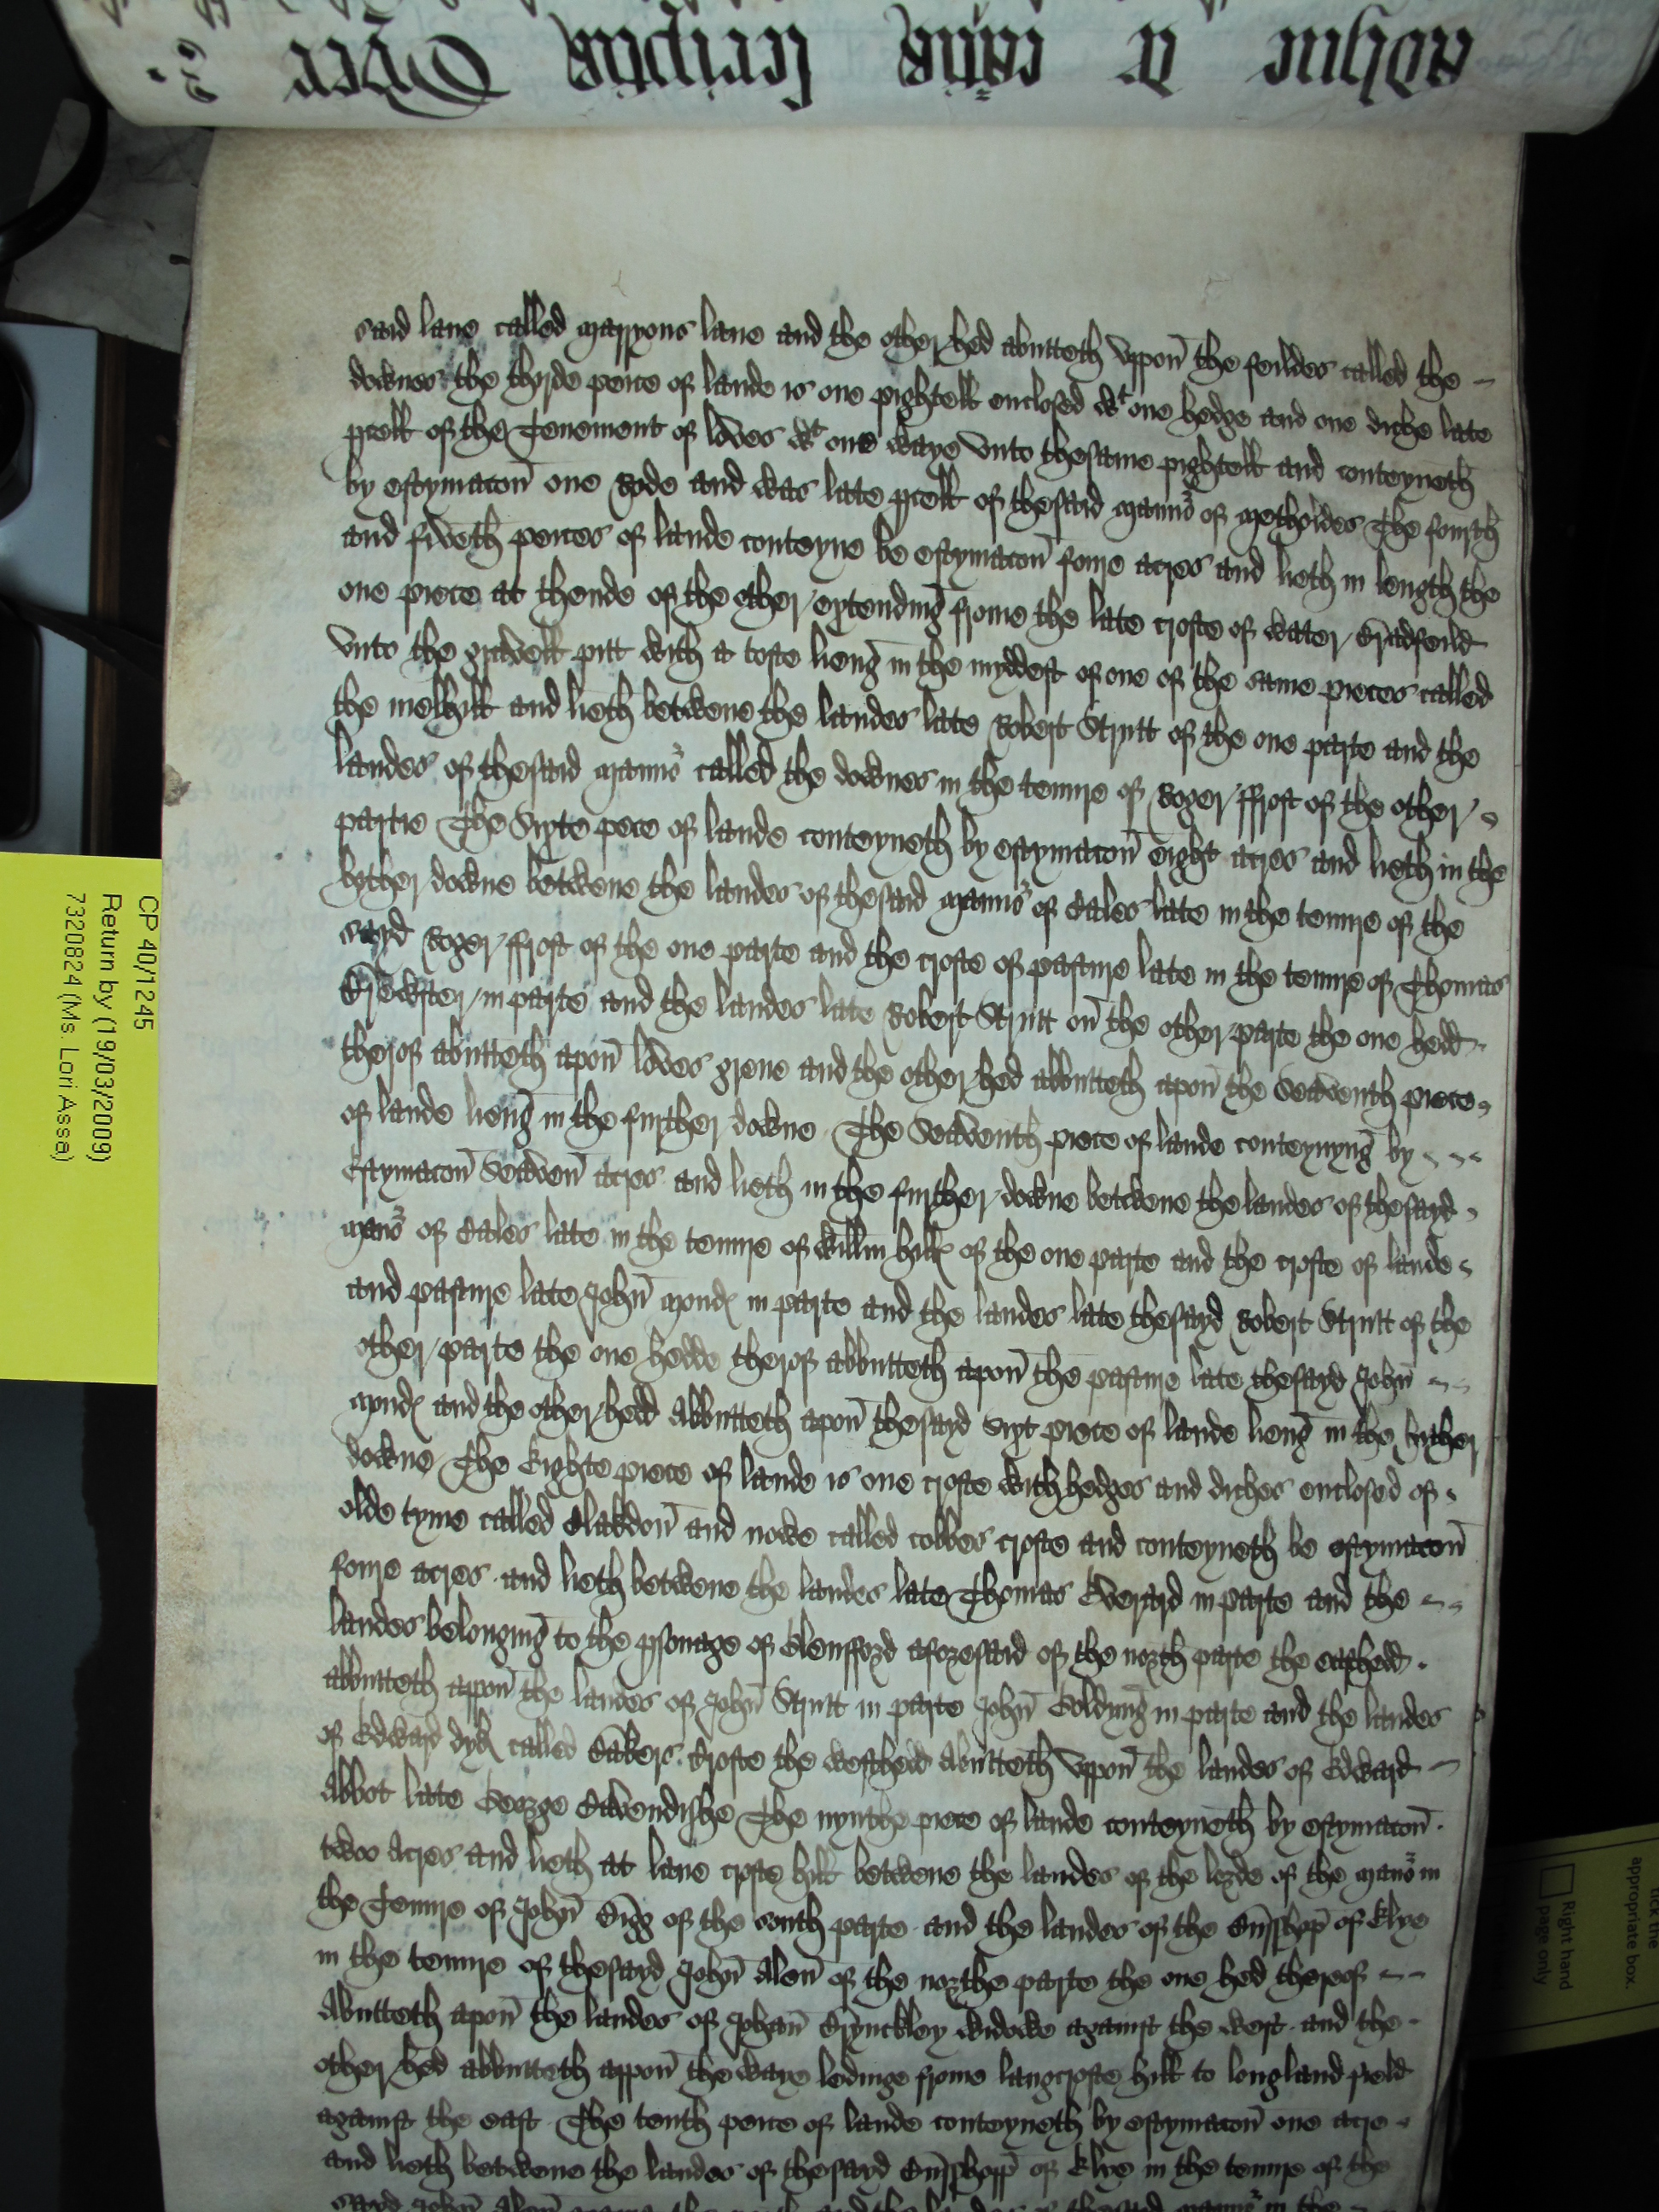 said lane called Maryons lane and the other hed abutteth uppon the feildes called the
downes the thyrde peice of lande is one pightell enclosed wt one hedge and one diche late
pcell of the Tenement of loves wt one waye unto thesame pightell and conteyneth
by estymacon one Rode and was late pcell of thesaid Mannor of Metholdes The fourth
and fiveth peices of lande conteyne be estymacon foure acres and lieth in length the
one piece at thende of the other extending frome the late crofte of water Bradfeild
unto the gravell pitt with a tofte lieng in the myddest of one of the same pieces called
the melhill and lieth betwene the landes late Robert Strutt of the one parte and the
landes of thesaid Mannor called the downes in the tenure of Roger ffrost of the other
partie The Sixte pece of lande conteyneth by estymacon eight acres and lieth in the
hyther downe betwene the landes of thesaid Mannor of Cales late in the tenure of the
sayd Roger ffrost of the one parte and the crofte of pasture late in the tenure of Thomas
Brewster in parte and the landes late Robert Strutt on the other parte the one hedd
therof abutteth apon loves grene and the other hed abbutteth apon the Seaventh piece
of lande lieng in the further downe The Seaventh piece of lande conteynyng by
Estymacon Seaven acres and lieth in the further downe betwene the landes of thesayd
Manor of Cales late in the tenure of Willm hill of the one parte and the crofte of lande
and pasture late John in parte and the landes late thesayd Robert Strutt of the
other parte the one hedde therof abbutteth apon the pasture late thesayd John
and the other hedd Abbutteth apon thesayd Sixt piece of lande lieng in the hither
downe The Eighte piece of lande is one crofte with hedges and diches enclosed of
olde tyme called Blakdon and nowe called cobbes crofte and conteyneth be estymacon
foure acres and lieth betwene the landes late Thomas Everard in parte and the
landes belonging to the psonage of Glemsford aforesaid of the north parte the easthedd
abbutteth appon the landes of John Strutt in parte John Goldyng in parte and the landes
of Edward called Bakers Crofte the westhed Abutteth uppon the landes of Edward
Abbot late George Cavendishe The nynthe piece of lande conteyneth by estymacon
twoo Acres and lieth at lane crofte hill betwene the landes of the lorde of the Manor in
the Tenure of John Bigg of the south parte and the landes of the Busshop of Elye
in the tenure of thesayd John Alen of the northe parte the one hed thereof
Abutteth apon the landes of Johan Brynckley widowe against the west and the
other hed abbutteth appon the waye ledinge frome langcrofte hill to longland field
against the east The tenth peice of lande conteyneth by estymacon one acre
and lieth betwene the landes of thesayd Busshopp of Elye in the tenure of the
sayd John Alen
CP 40/1245
Return by (19/03/2009)
7320824 (Ms. Lori Assa)
tick the
appropriate box.
Right hand
page only